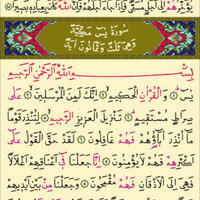 يُؤَخِّرُهُمْ إِلَىٰ أَجَلٍ مُّسَمًّى فَإِذَا جَاءَ أَجَلُهُمْ فَإِنَّ اللَّهَ كَانَ بِعِبَادِهِ بَصِيرًا
سُورَةُ يٰسٓ مَكِّيَّةٌ
وَهِيَ ثَلَاثٌ وَثَمَانُونَ آيَةً
بِسْمِ اللَّهِ الرَّحْمَٰنِ الرَّحِيمِ
يسٓ ۝ وَالْقُرْآنِ الْحَكِيمِ ۝ إِنَّكَ لَمِنَ الْمُرْسَلِينَ ۝ عَلَىٰ
صِرَاطٍ مُّسْتَقِيمٍ ۝ تَنزِيلَ الْعَزِيزِ الرَّحِيمِ ۝ لِتُنذِرَ قَوْمًا
مَّا أُنذِرَ آبَاؤُهُمْ فَهُمْ غَافِلُونَ ۝ لَقَدْ حَقَّ الْقَوْلُ عَلَىٰ
أَكْثَرِهِمْ فَهُمْ لَا يُؤْمِنُونَ ۝ إِنَّا جَعَلْنَا فِي أَعْنَاقِهِمْ أَغْلَالًا
فَهِيَ إِلَى الْأَذْقَانِ فَهُم مُّقْمَحُونَ ۝ وَجَعَلْنَا مِن بَيْنِ أَيْدِيهِمْ